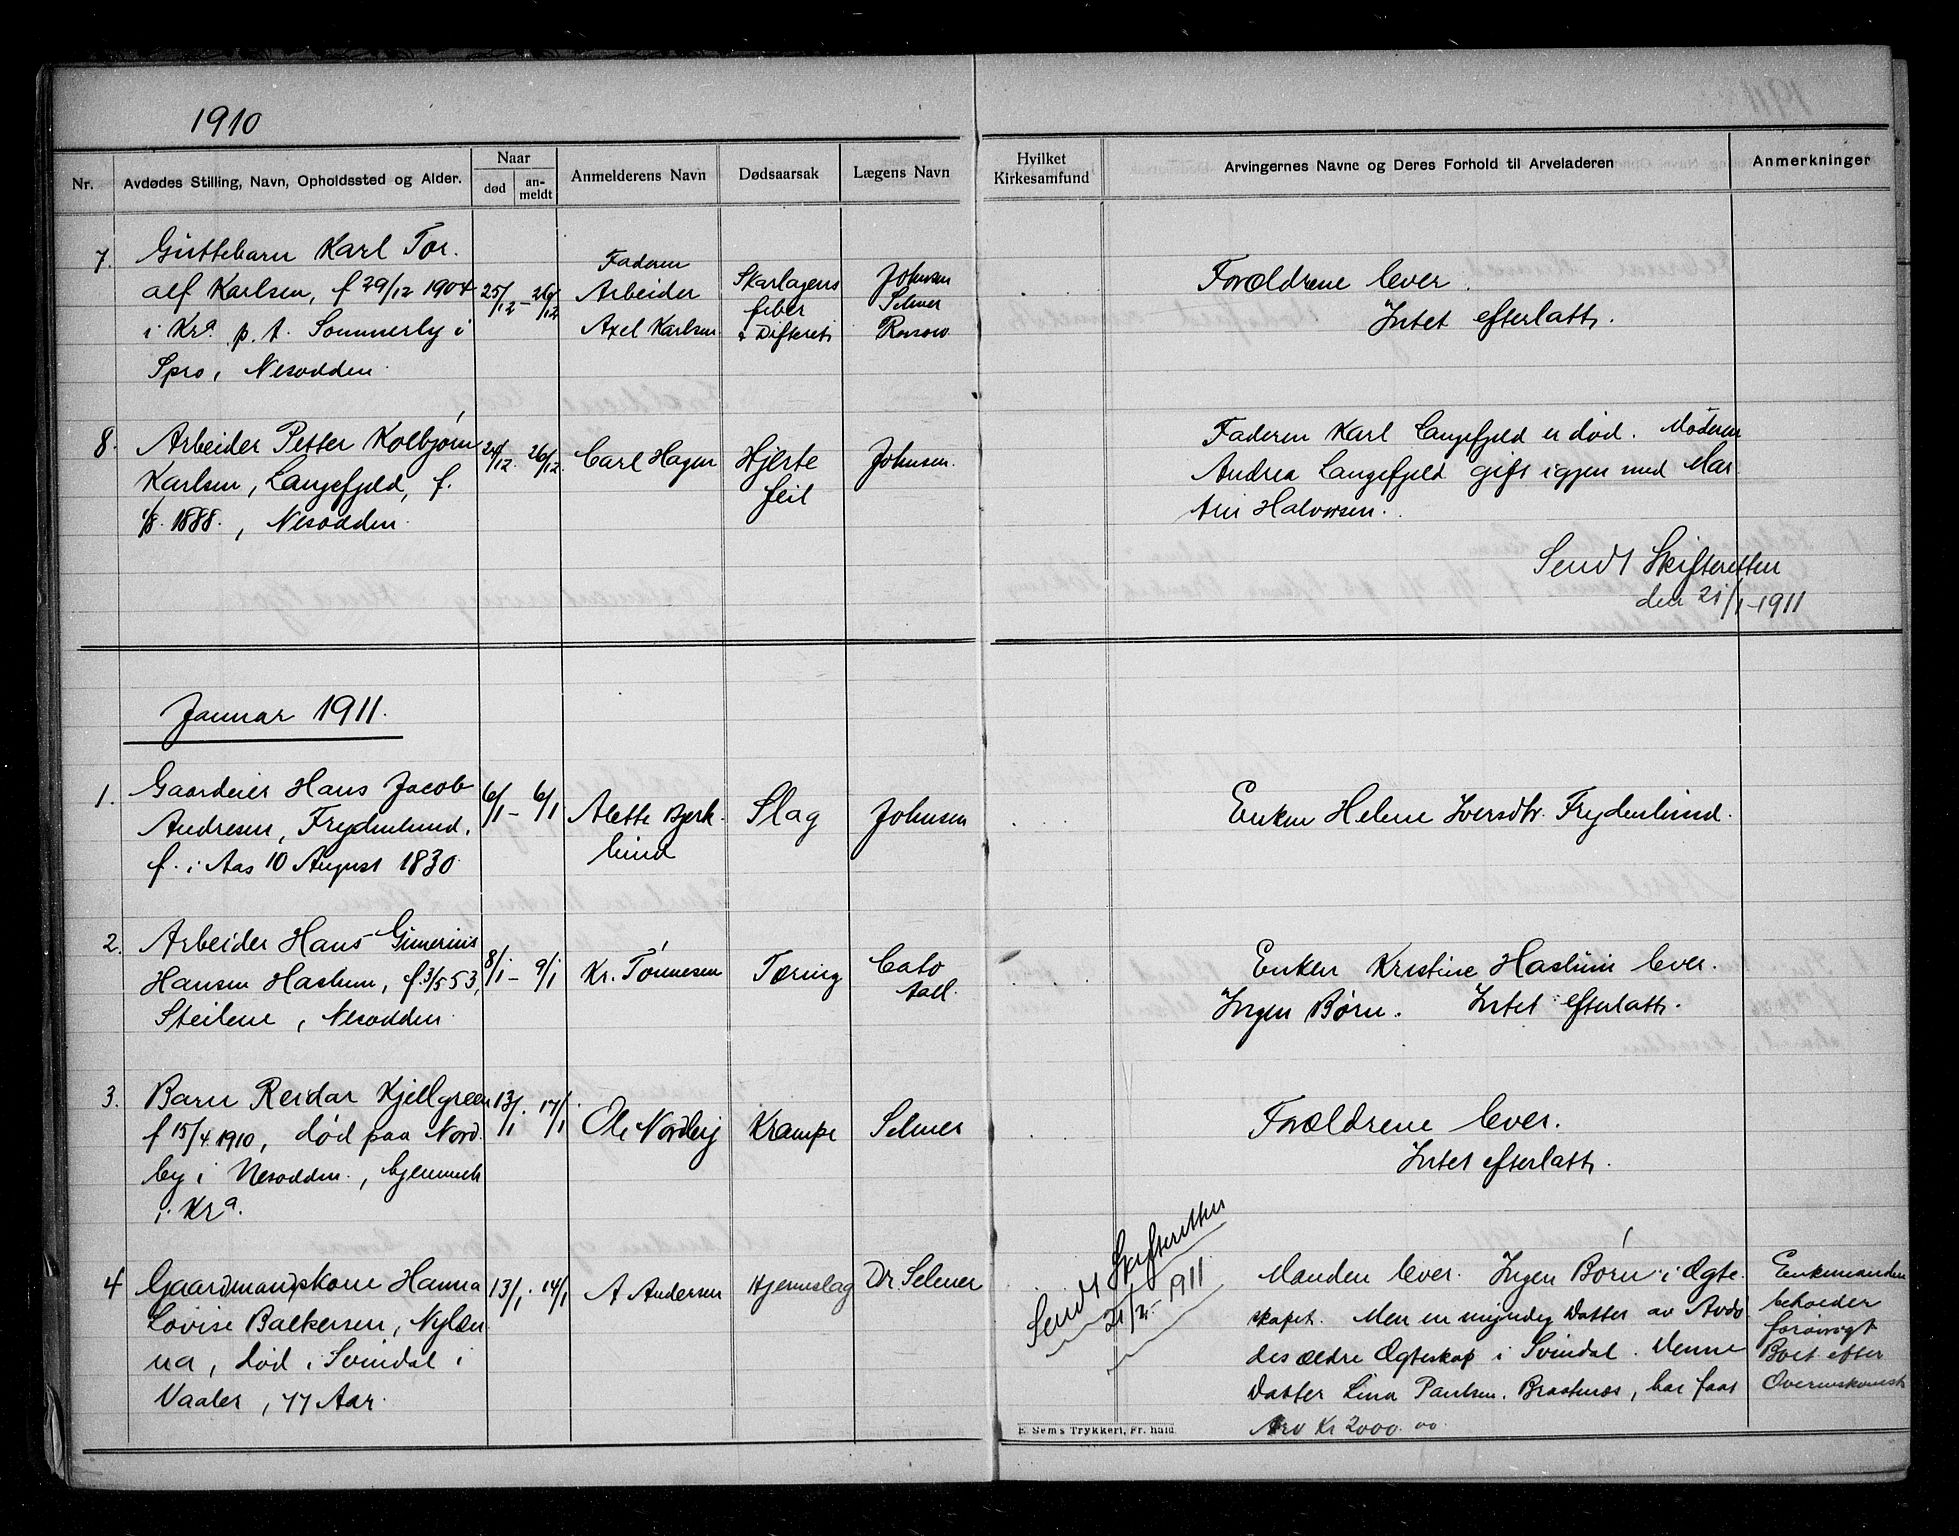 1910
Nr.
Avdødes Stilling, Navn, Opholdssted og Alder.
Naar
død
an-
meldt
Anmelderens Navn
Dødsaarsak
Lægens Navn
Hvilket
Kirkesamfund
Arvingernes Navne og Deres Forhold til Arveladeren
Anmerkninger
7. Guttebarn Karl Tor
alf Karlsen, f 29/12 1904
i Kra p. t. Sommerby i
Spro, Nesodden.
25/12 - 26/12
Faderen
Arbeider
Axel Karlsen
Skarlagens
feber
& Difterit
Johnsen
Selmer
Forældrene lever.
Intet efterlatt.
8. Arbeider Petter Kolbjørn
Karlsen, Langefjeld, f.
1888., Nesodden.
24/12. 26/12.
Carl Hagen
Hjerte
feil
Johnsen.
Faderen Karl Langefjeld er død. Moderen
Andrea Langefjeld gift igjen med Mar
tin Halvorsen.
Sendt Skifteretten
den 21/1-1911
Januar 1911.
1. Gaardeier Hans Jacob
Andresen, Frydenlund,
f. i Aas 10 August 1830.
6/1 - 6/1
Alette Bjerk
lund
Slag
Johnsen
Enken Helene Iversdtr. Frydenlund.
2. Arbeider Hans Gunerius
Hansen Haslum, f. 3/5 53,
Steilene, Nesodden.
8/1 - 9/1
Kr. Tønnesen
Tæring
Cato
Aall.
Enken Kristine Haslum lever.
Ingen Børn. Intet efterlatt.
3. Barn Reidar Kjellgreen
f 15/4 1910, død paa Nord
by i Nesodden., hjemmeh
i Kra.
13/1. 17/1
Ole Nordby
Krampe
Selmer
Forældrene lever.
Intet efterlatt.
4 Gaardmandskone Hanna
Lovise Bakkersen, Nylæn
na, død i Svindal i
Vaaler, 77 Aar.
13/1. 14/1
A Andersen
Hjerneslag
Dr. Selmer
Sendt Skifteretten
21/2 - 1911
Manden lever. Ingen Børn i Ægte
skapet. Men en myndig Datter av Avdø
des ældre Ægteskap i Svindal. Denne
Datter Lina Paulsen, Braatenæs, har faat
Arv Kr 2000.00
Enkemanden
beholder
forøvrigt
Boet efter
Overenskomst
E. Sem's Trykkeri, Fr. hald.